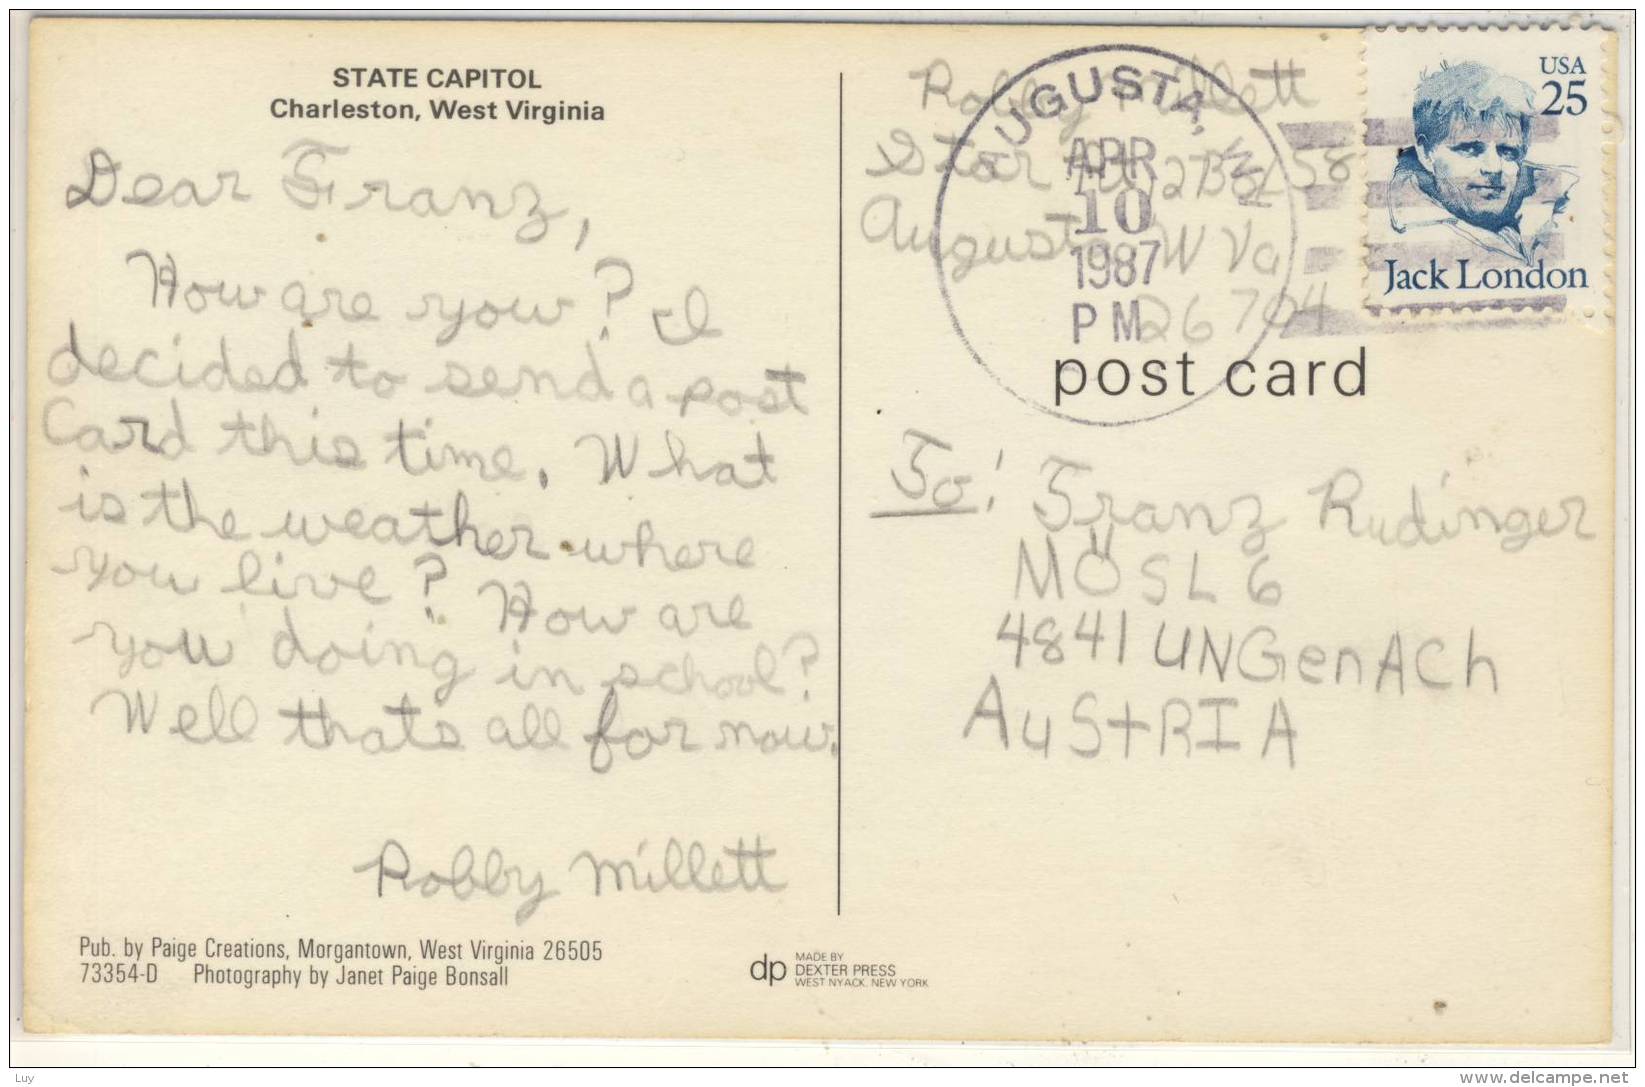 STATE CAPITOL
Charleston, West Virginia
Dear Franz,
How are you? I
decided to send a post
Card this time. What
is the weather where
you live? How are
you doing in school?
Well thats all for now.
Robby Millett
Pub. by Paige Creations, Morgantown, West Virginia 26505
73354-D Photography by Janet Paige Bonsall
dp MADE BY
DEXTER PRESS
WEST NYACK, NEW YORK
Robby Millett
Star Rt 2 Box 58
Augusta W Va
26704
AUGUSTA, WV
APR
10
1987
PM
USA
25
Jack London
post card
To: Franz Rudinger
MÖSL 6
4841 UNGenACh
AuStRIA
Luy
www.delcampe.net